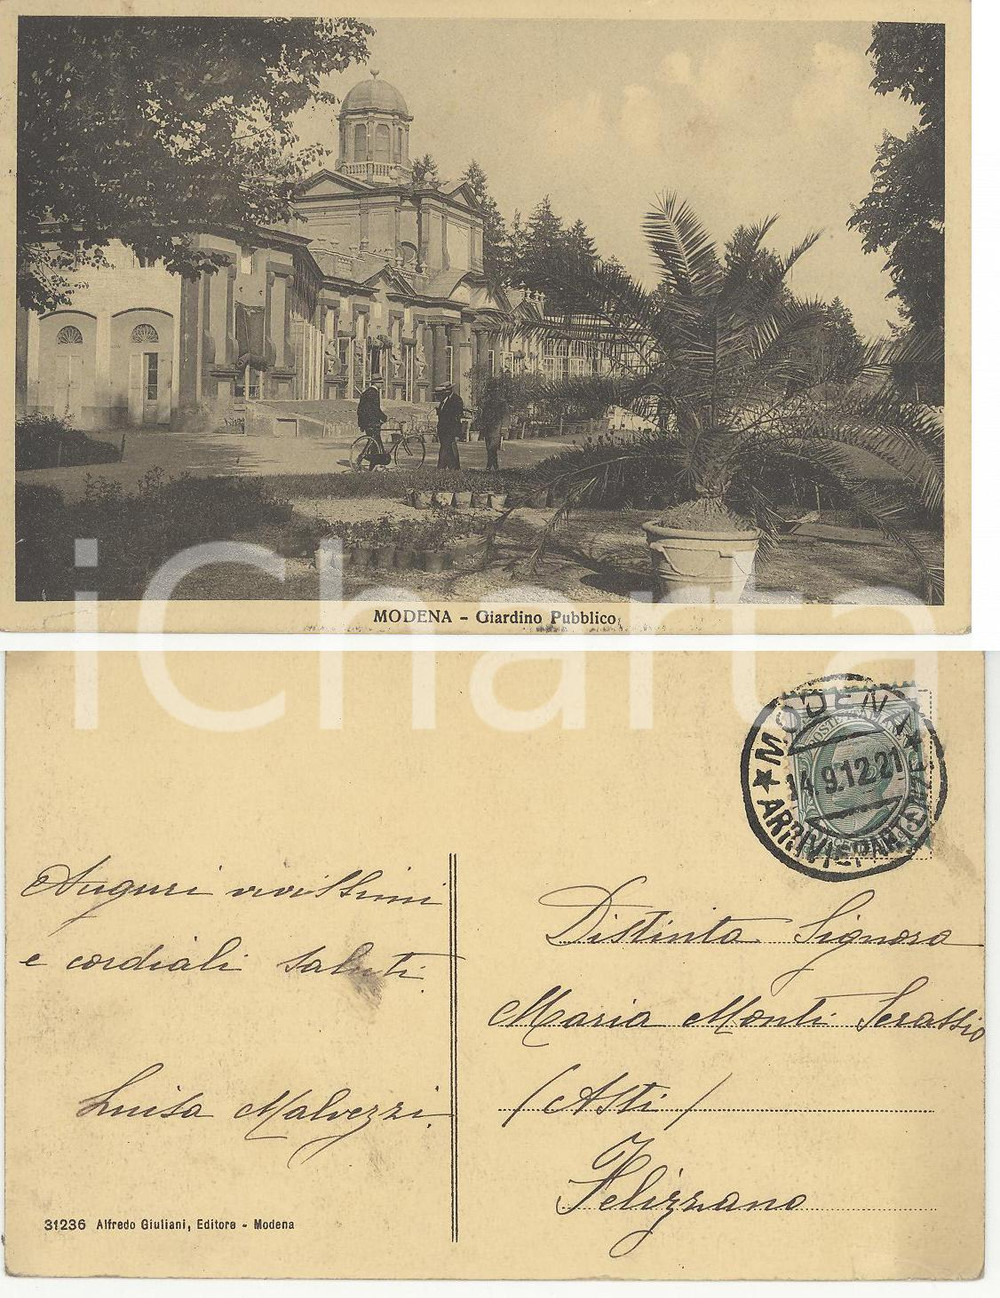 MODENA – Giardino Pubblico
iCharta
MODENA
14.9.12.21
ARRIVI E PARTENZE
Auguri vivissimi
e cordiali saluti.
Luisa Malvezzi.
Distinta Signora
Maria Monti Serassio
(Asti)
Felizzano
31236 Alfredo Giuliani, Editore - Modena